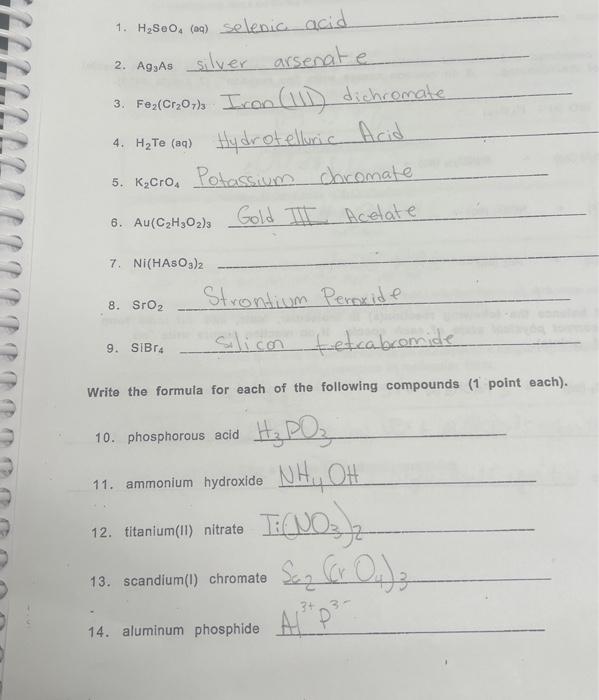 1. H₂SeO₄ (aq) selenic acid
2. Ag₃As silver arsenate
3. Fe₂(Cr₂O₇)₃ Iron (III) dichromate
4. H₂Te (aq) Hydrotelluric Acid
5. K₂CrO₄ Potassium chromate
6. Au(C₂H₃O₂)₃ Gold III Acetate
7. Ni(HAsO₃)₂
8. SrO₂ Strontium Peroxide
9. SiBr₄ Silicon tetrabromide
Write the formula for each of the following compounds (1 point each).
10. phosphorous acid H₃PO₃
11. ammonium hydroxide NH₄OH
12. titanium(II) nitrate Ti(NO₃)₂
13. scandium(I) chromate Sc₂(CrO₄)₃
14. aluminum phosphide Al³⁺P³⁻